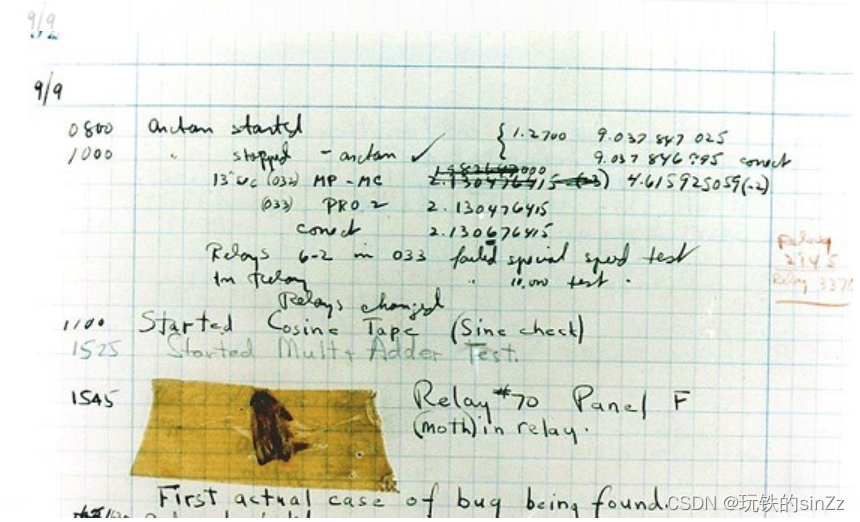 9/9
9/9
0800 antan started { 1.2700 9.037 847 025
1000 " stopped - antan ✓ 9.037 846 995 conect
13" uc (032) MP - MC 2.130476415 4.615925059(-2)
(033) PRO 2 2.130476415
conect 2.130676415
Relays 6-2 in 033 failed special speed test
In Relay " 10,000 test .
Relays changed
Relay
2145
Relay 3370
1100 Started Cosine Tape (Sine check)
1525 Started Mult + Adder Test.
1545 Relay #70 Panel F
(moth) in relay.
First actual case of bug being found.
CSDN @玩铁的sinZz